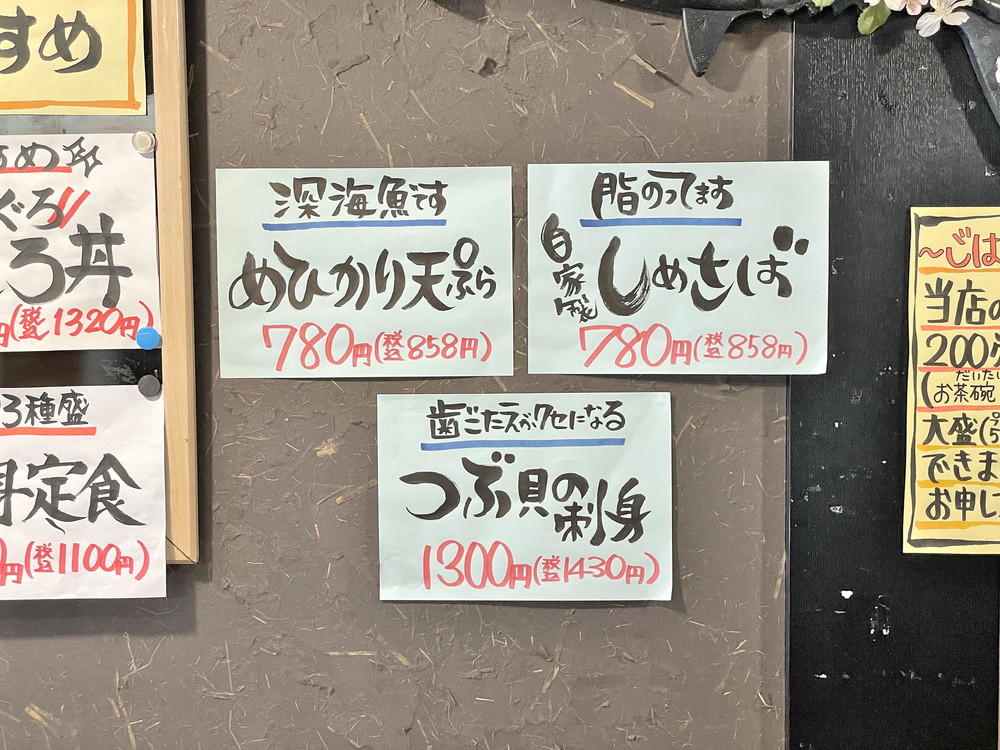 すめ
すめ
ぐろ
ろ丼
円(税込1320円)
3種盛
身定食
0円(税込1100円)
深海魚です
めひかり天ぷら
780円(税込858円)
脂のってます
自家製
しめさば
780円(税込858円)
歯ごたえがクセになる
つぶ貝の刺身
1300円(税込1430円)
〜ごは
当店の
200
だいたい
(お茶碗
大盛(
できま
お申し